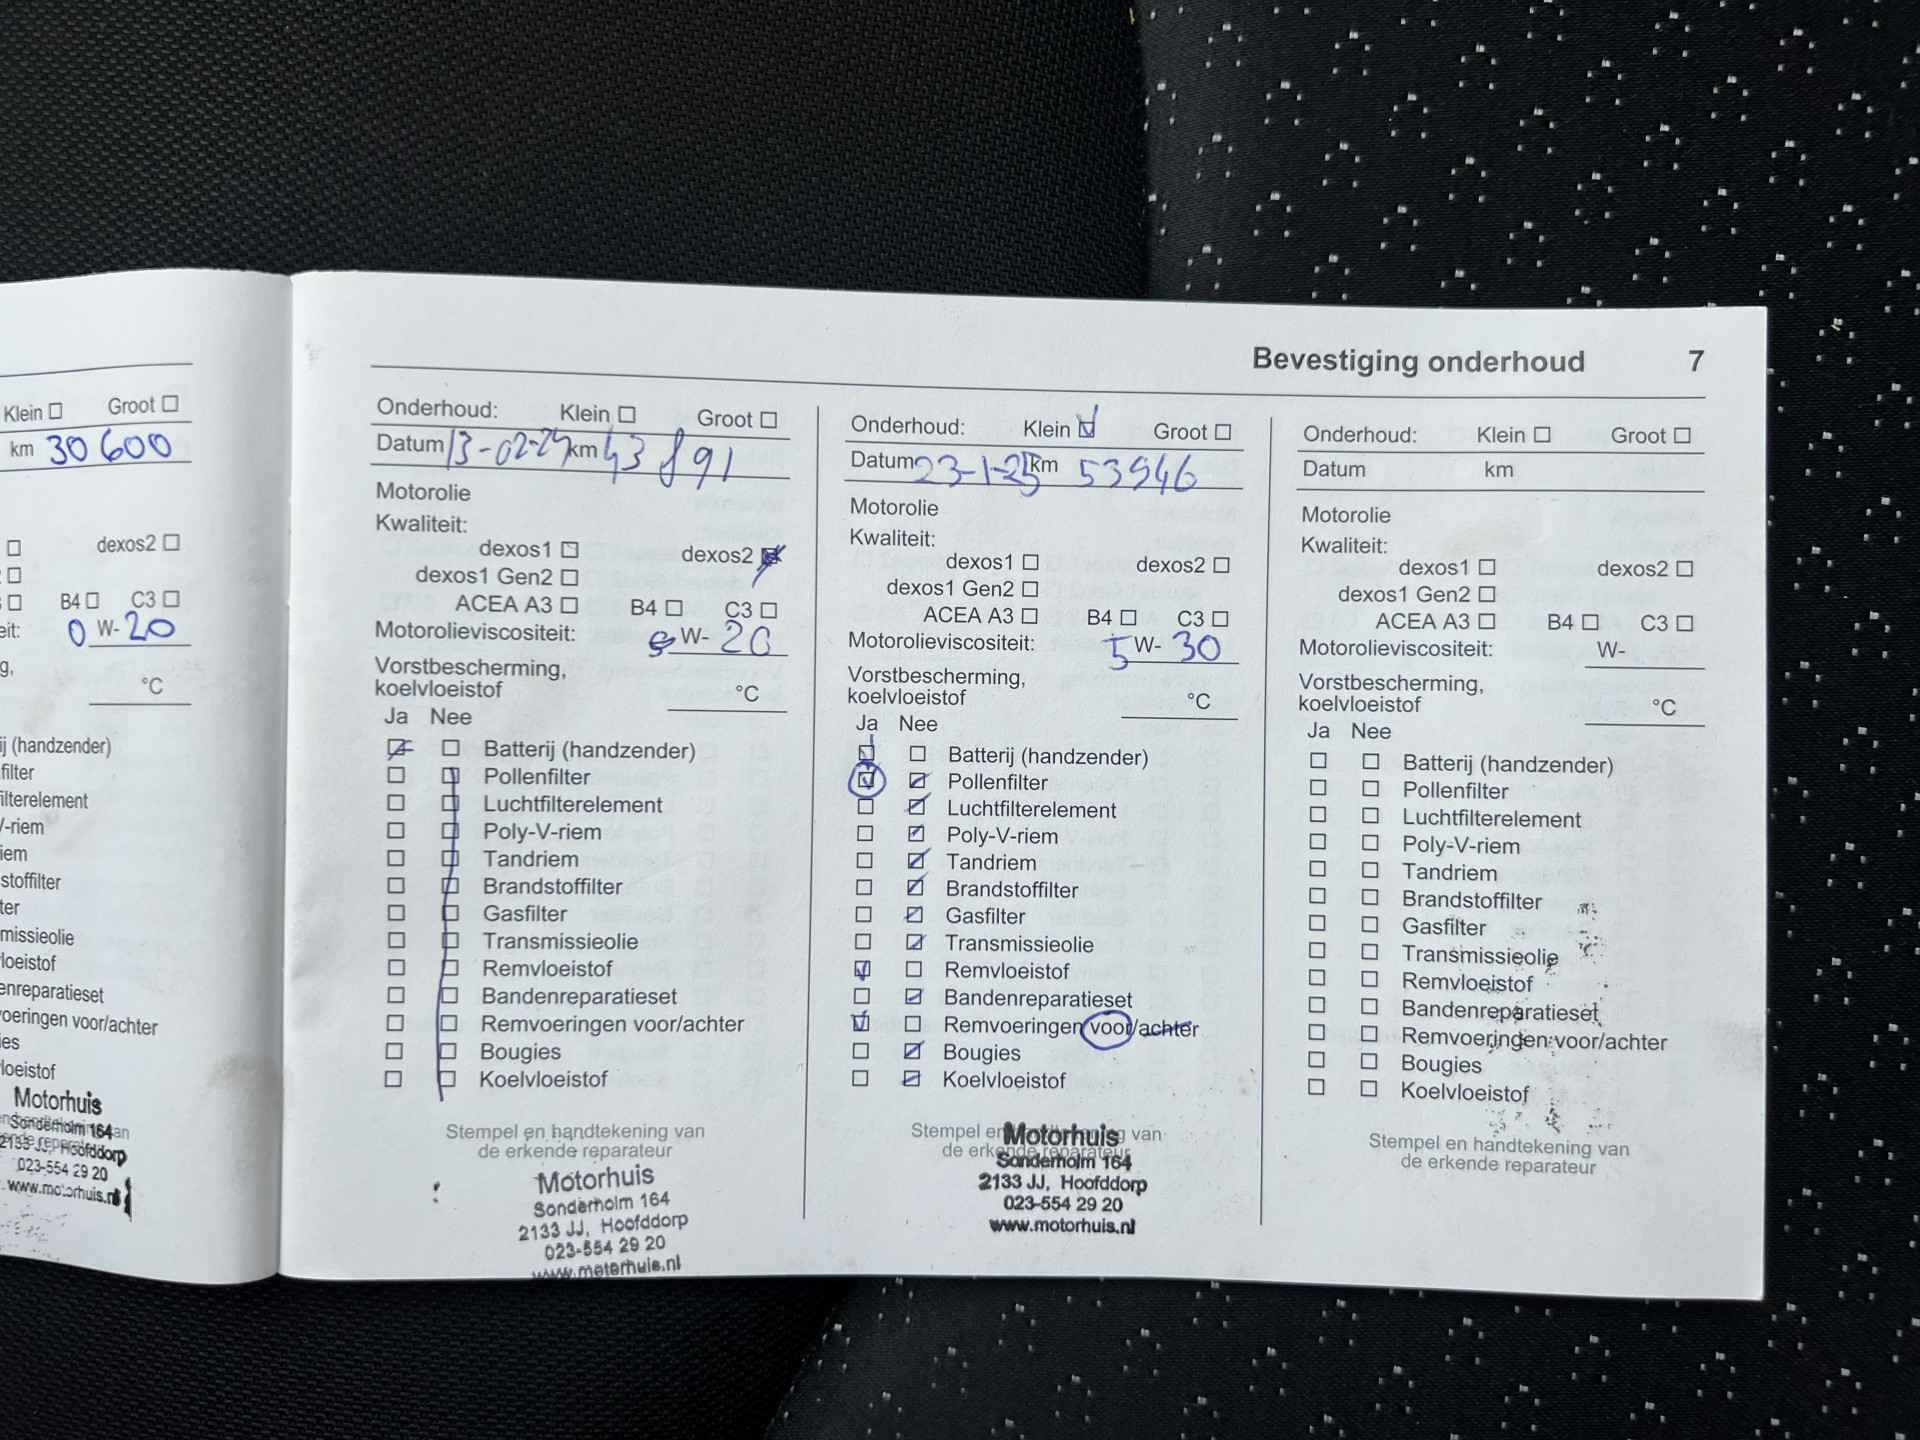 Klein Groot
km 30 600
dexos2
B4 C3
eit: 0 W- 20
g,
°C
ij (handzender)
filter
ilterelement
V-riem
iem
stoffilter
ter
missieolie
loeistof
enreparatieset
voeringen voor/achter
ies
loeistof
Motorhuis
Sonderholm 164
2133 JJ, Hoofddorp
023-554 29 20
www.motorhuis.nl
Bevestiging onderhoud 7
Onderhoud: Klein Groot
Datum 13-02-24 km 43 891
Motorolie
Kwaliteit:
dexos1 dexos2
dexos1 Gen2
ACEA A3 B4 C3
Motorolieviscositeit: W- 20
Vorstbescherming,
koelvloeistof °C
Ja Nee
Batterij (handzender)
Pollenfilter
Luchtfilterelement
Poly-V-riem
Tandriem
Brandstoffilter
Gasfilter
Transmissieolie
Remvloeistof
Bandenreparatieset
Remvoeringen voor/achter
Bougies
Koelvloeistof
Stempel en handtekening van
de erkende reparateur
Motorhuis
Sonderholm 164
2133 JJ, Hoofddorp
023-554 29 20
www.motorhuis.nl
Onderhoud: Klein Groot
Datum 23-1-25 km 53946
Motorolie
Kwaliteit:
dexos1 dexos2
dexos1 Gen2
ACEA A3 B4 C3
Motorolieviscositeit: 5 W- 30
Vorstbescherming,
koelvloeistof °C
Ja Nee
Batterij (handzender)
Pollenfilter
Luchtfilterelement
Poly-V-riem
Tandriem
Brandstoffilter
Gasfilter
Transmissieolie
Remvloeistof
Bandenreparatieset
Remvoeringen voor/achter
Bougies
Koelvloeistof
Stempel en handtekening van
de erkende reparateur
Motorhuis
Sonderholm 164
2133 JJ, Hoofddorp
023-554 29 20
www.motorhuis.nl
Onderhoud: Klein Groot
Datum km
Motorolie
Kwaliteit:
dexos1 dexos2
dexos1 Gen2
ACEA A3 B4 C3
Motorolieviscositeit: W-
Vorstbescherming,
koelvloeistof °C
Ja Nee
Batterij (handzender)
Pollenfilter
Luchtfilterelement
Poly-V-riem
Tandriem
Brandstoffilter
Gasfilter
Transmissieolie
Remvloeistof
Bandenreparatieset
Remvoeringen voor/achter
Bougies
Koelvloeistof
Stempel en handtekening van
de erkende reparateur